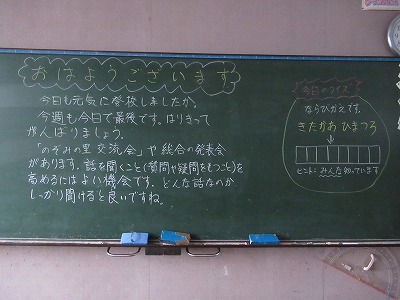 おはようございます
今日も元気に登校しましたか。
今週も今日で最後です。はりきって
がんばりましょう。
「のぞみの里 交流会」や総合の発表会
があります。話を聞くこと(質問や疑問をもつこと)を
高めるにはよい機会です。どんな話なのか
しっかり聞けると良いですね。
今日のクイズ
ならびかえです。
きたかあ ひまつろ
ヒント:みんな知っています